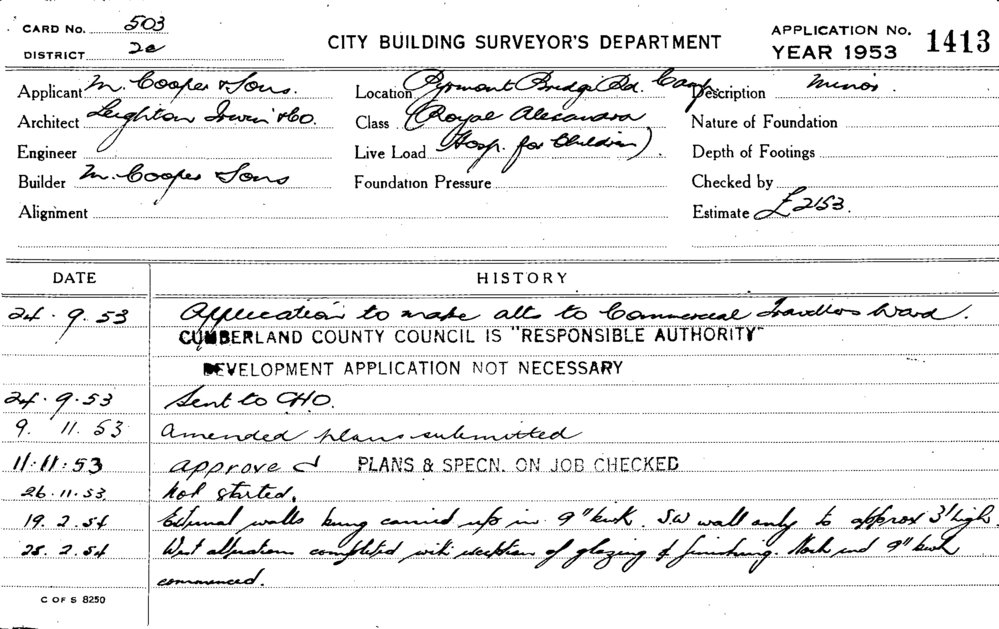 CARD No. 503
DISTRICT 2e
CITY BUILDING SURVEYOR'S DEPARTMENT
APPLICATION No. 1413
YEAR 1953
Applicant M. Cooper & Sons.
Location Pyrmont Bridge Rd. Camp.
Description Minor.
Architect Leighton Irwin & Co.
Class (Royal Alexandra
Nature of Foundation
Engineer
Live Load Hosp. for Children).
Depth of Footings
Builder M. Cooper & Sons
Foundation Pressure
Checked by
Alignment
Estimate £2153.
DATE HISTORY
24.9.53 Application to make alts to Commercial Travellers Ward.
CUMBERLAND COUNTY COUNCIL IS "RESPONSIBLE AUTHORITY"
DEVELOPMENT APPLICATION NOT NECESSARY
24.9.53 Sent to CHO.
9. 11. 53 amended plans submitted
11:11:53 approved PLANS & SPECN. ON JOB CHECKED
26.11.53 Not started.
19.2.54 External walls being carried up in 9" bwk. S.W wall only to approx 3' high.
25.2.54 West alterations completed with exception of glazing & finishing. North end 9" bwk
commenced.
C OF S 8250